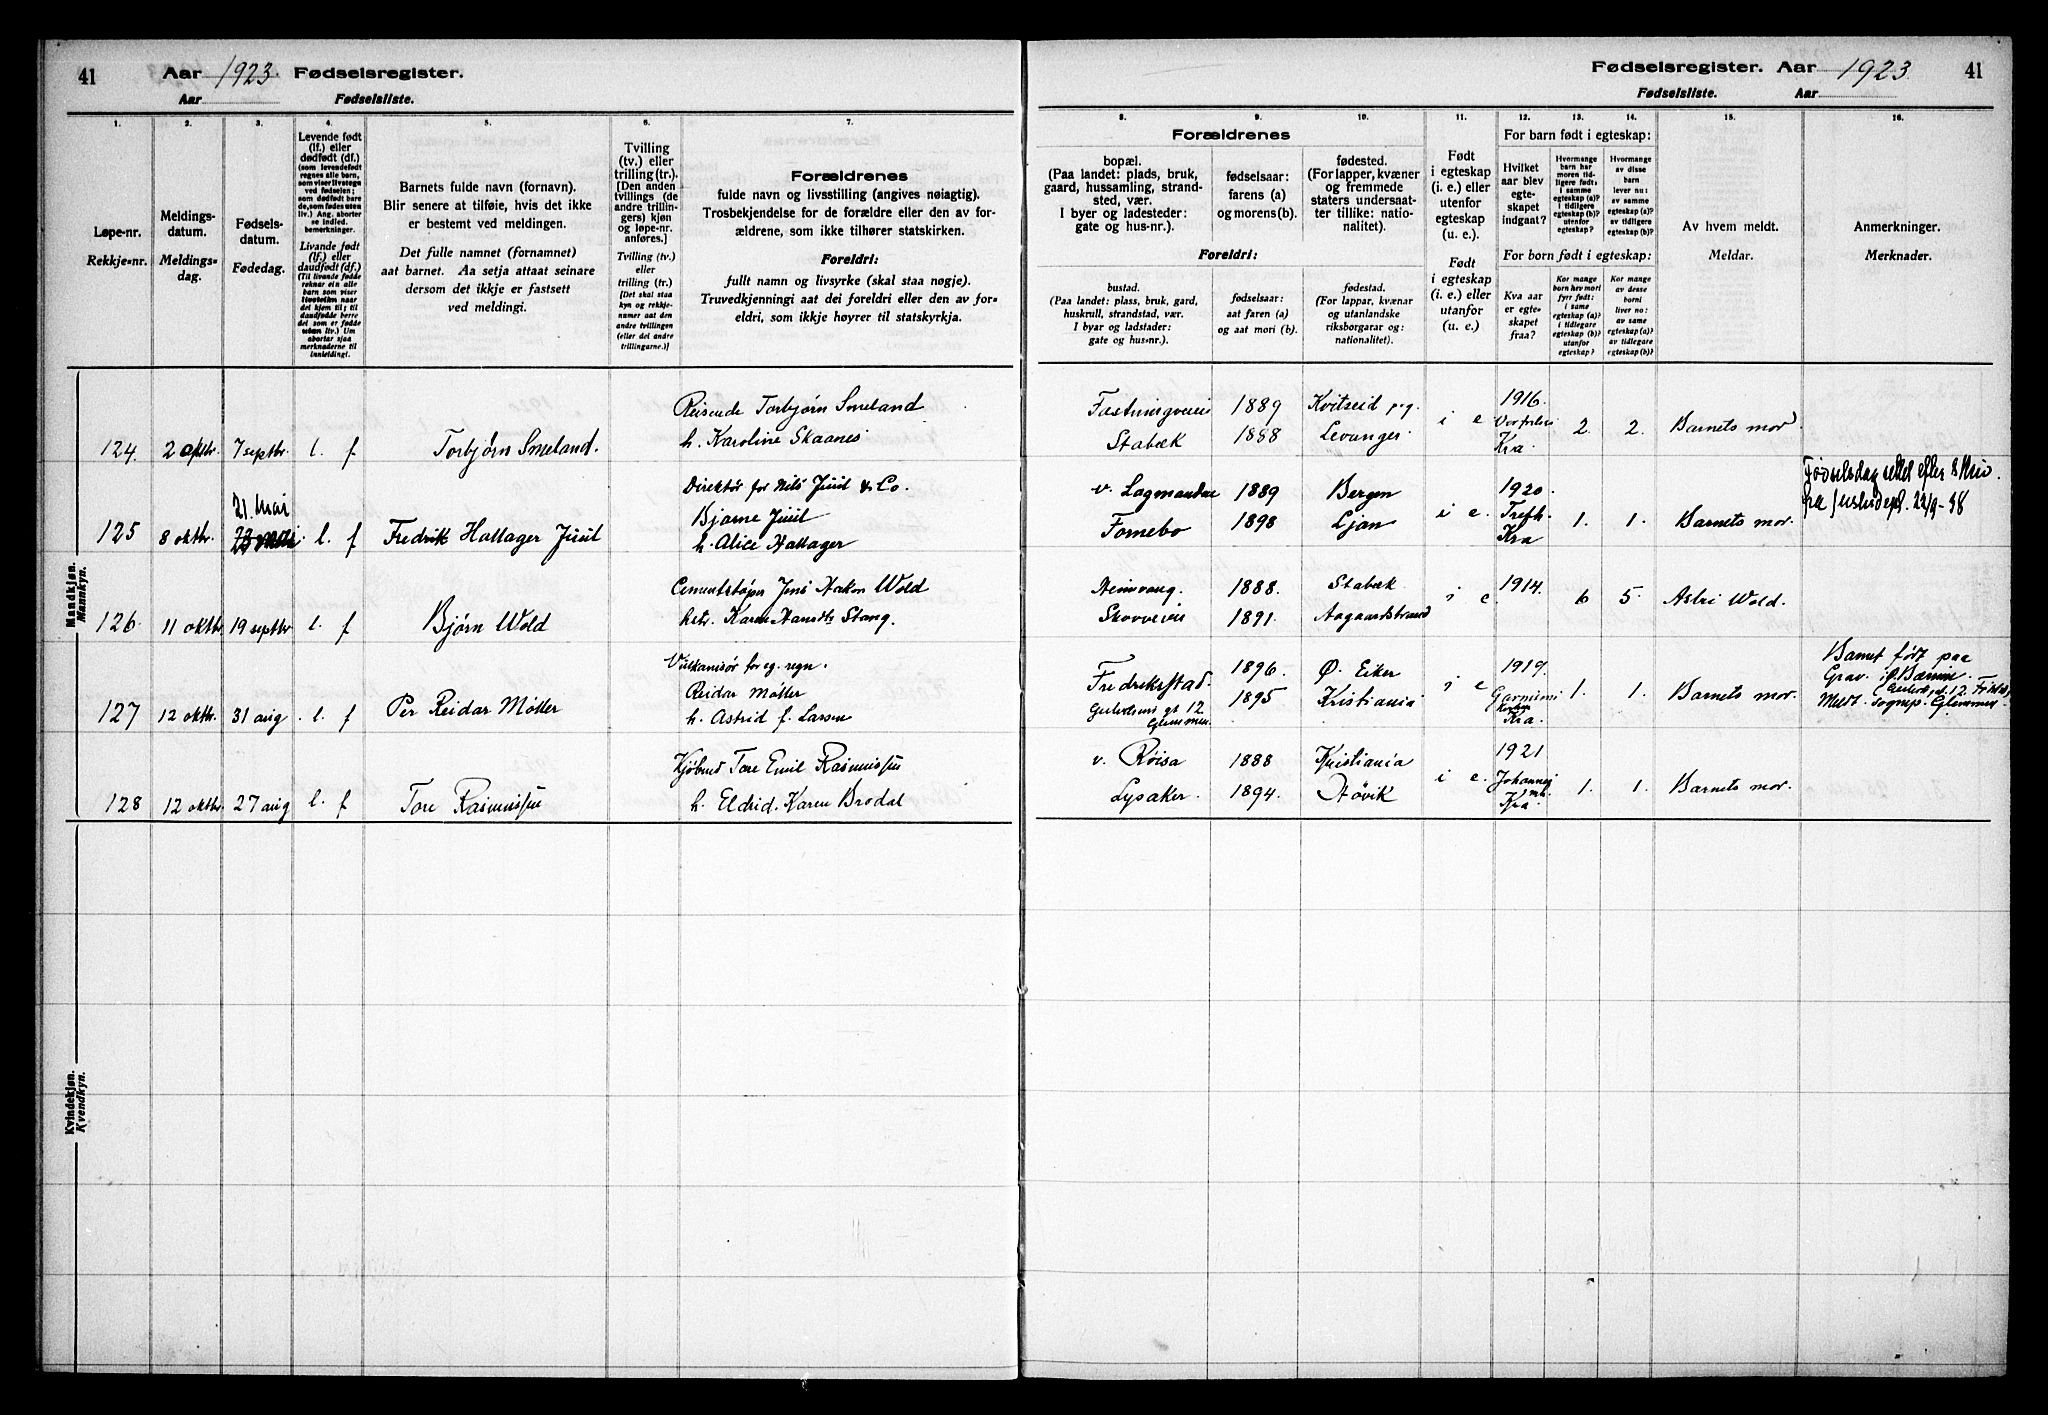 41 Aar 1923. Fødselsregister.
Aar Fødselsliste.
Fødselsregister. Aar 1923 41
Fødselsliste. Aar
1. 2. 3. 4. 5. 6. 7.
Løpe-nr.
Rekkje-nr.
Meldings-
datum.
Meldings-
dag.
Fødsels-
datum.
Fødedag.
Levende født
(lf.) eller
dødfødt (df.)
(som levendefødt
regnes alle barn,
som viser livstegn
ved fødselen;
som dødfødt bare
de, som fødes uten
liv.) Ang. aborter
se indled.
bemerkninger.
Livande født
(lf.) eller
daudfødt (df.)
(Til livande fødde
reknar ein alle
born som viser
livsteikn naar
det kjem til; til
daudfødde berre
dei som er fødde
utan liv.) Um
abortar sjaa
merknaderne til
innleidingi.
Barnets fulde navn (fornavn).
Blir senere at tilføie, hvis det ikke
er bestemt ved meldingen.
Det fulle namnet (fornamnet)
aat barnet. Aa setja attaat seinare
dersom det ikkje er fastsett
ved meldingi.
Tvilling
(tv.) eller
trilling (tr.).
[Den anden
tvillings (de
andre trillin-
gers) kjøn
og løpe-nr.
anføres.]
Tvilling (tv.)
eller
trilling (tr.)
[Det skal staa
kyn og rekkje-
numer aat den
andre tvillingen
(eller dei andre
trillingarne.)]
Forældrenes
fulde navn og livsstilling (angives nøiagtig).
Trosbekjendelse for de forældre eller den av for-
ældrene, som ikke tilhører statskirken.
Foreldri:
fullt namn og livsyrke (skal staa nøgje).
Truvedkjenningi aat dei foreldri eller den av for-
eldri, som ikkje høyrer til statskyrkja.
8. 9. 10. 11. 12. 13. 14. 15. 16.
Forældrenes
bopæl.
(Paa landet: plads, bruk,
gaard, hussamling, strand-
sted, vær.
I byer og ladesteder:
gate og hus-nr.).
fødselsaar:
farens (a)
og morens (b).
fødested.
(For lapper, kvæner
og fremmede
staters undersaat-
ter tillike: natio-
nalitet).
Foreldri:
bustad.
(Paa landet: plass, bruk, gard,
huskrull, strandstad, vær.
I byar og ladstader:
gate og hus-nr.).
fødselsaar:
aat faren (a)
og aat mori (b).
fødestad.
(For lappar, kvænar
og utanlandske
riksborgarar og:
nationalitet).
Født
i egteskap
(i. e.) eller
utenfor
egteskap
(u. e.).
Født
i egteskap
(i. e.) eller
utanfor
(u. e.).
For barn født i egteskap:
Hvilket
aar blev
egte-
skapet
indgaat?
Hvormange
barn har
moren tid-
ligere født:
i samme
egteskap (a)?
i tidligere
egteskap (b)?
utenfor
egteskap?
Hvormange
av disse
barn
lever nu:
av samme
egteskap (a)?
av tidligere
egteskap (b)?
For born født i egteskap:
Kva aar
er egte-
skapet
fraa?
Kor mange
born hev mori
fyrr født:
i same
egteskap (a)?
i tidlegare
egteskap (b)?
utanfor
egteskap?
Kor mange
av desse
borni
liver no:
av same
egteskap (a)?
av tidlegare
egteskap (b)?
Av hvem meldt.
Meldar.
Anmerkninger.
Merknader.
Mandkjøn.
Mannkyn.
124. 2 oktbr. 7 septbr. l. f Torbjørn Smeland.
Reisende Torbjørn Smeland
h. Karoline Skaanes
Stabæk
1889
1888
Kvitseid prg.
Levanger
i e
1916.
Kra
2. 2. Barnets mor
21. mai
125 8 oktbr. l. f Fredrik Hallager Juul
Direktør for Nils Juul & Co.
Bjarne Juul
h. Alice Hallager
Fornebo
1889
1898
Bergen
Ljan
i e.
1920.
Trefh.
Kra
1. 1. Barnets mor.
Fødselsdag rettet efter
fra Justisdept.
126. 11 oktbr 19 septbr l. f Bjørn Wold
Cementstøper Jens Hakon Wold
Stang.
Skovveien
1888.
1891.
Stabæk
Aagaardstrand
i e.
1914.
6 5. Astri Wold.
127 12 oktbr. 31 aug. l. f Per Reidar Møller
Vulkanisør for eg. regn.
Reidar Møller
h. Astrid f. Larsen
Fredrikstad.
gt 12
Glemmen.
1896.
1895
Ø. Eiker
Kristiania
i e
1919.
Kra.
1. 1. Barnets mor.
Barnet født paa
Grav. i Ø. Bærum.
Meldt. sognep. Glemmen
128 12 oktbr 27 aug l. f Tore Rasmussen
Kjøbmd Tore Emil Rasmussen
h. Eldrid. Karen Brodal
v. Røisa
Lysaker.
1888
1894.
Kristiania
Høvik
i e.
1921
Johannes
Kra
1. 1. Barnets mor.
Kvindekjøn.
Kvendkyn.